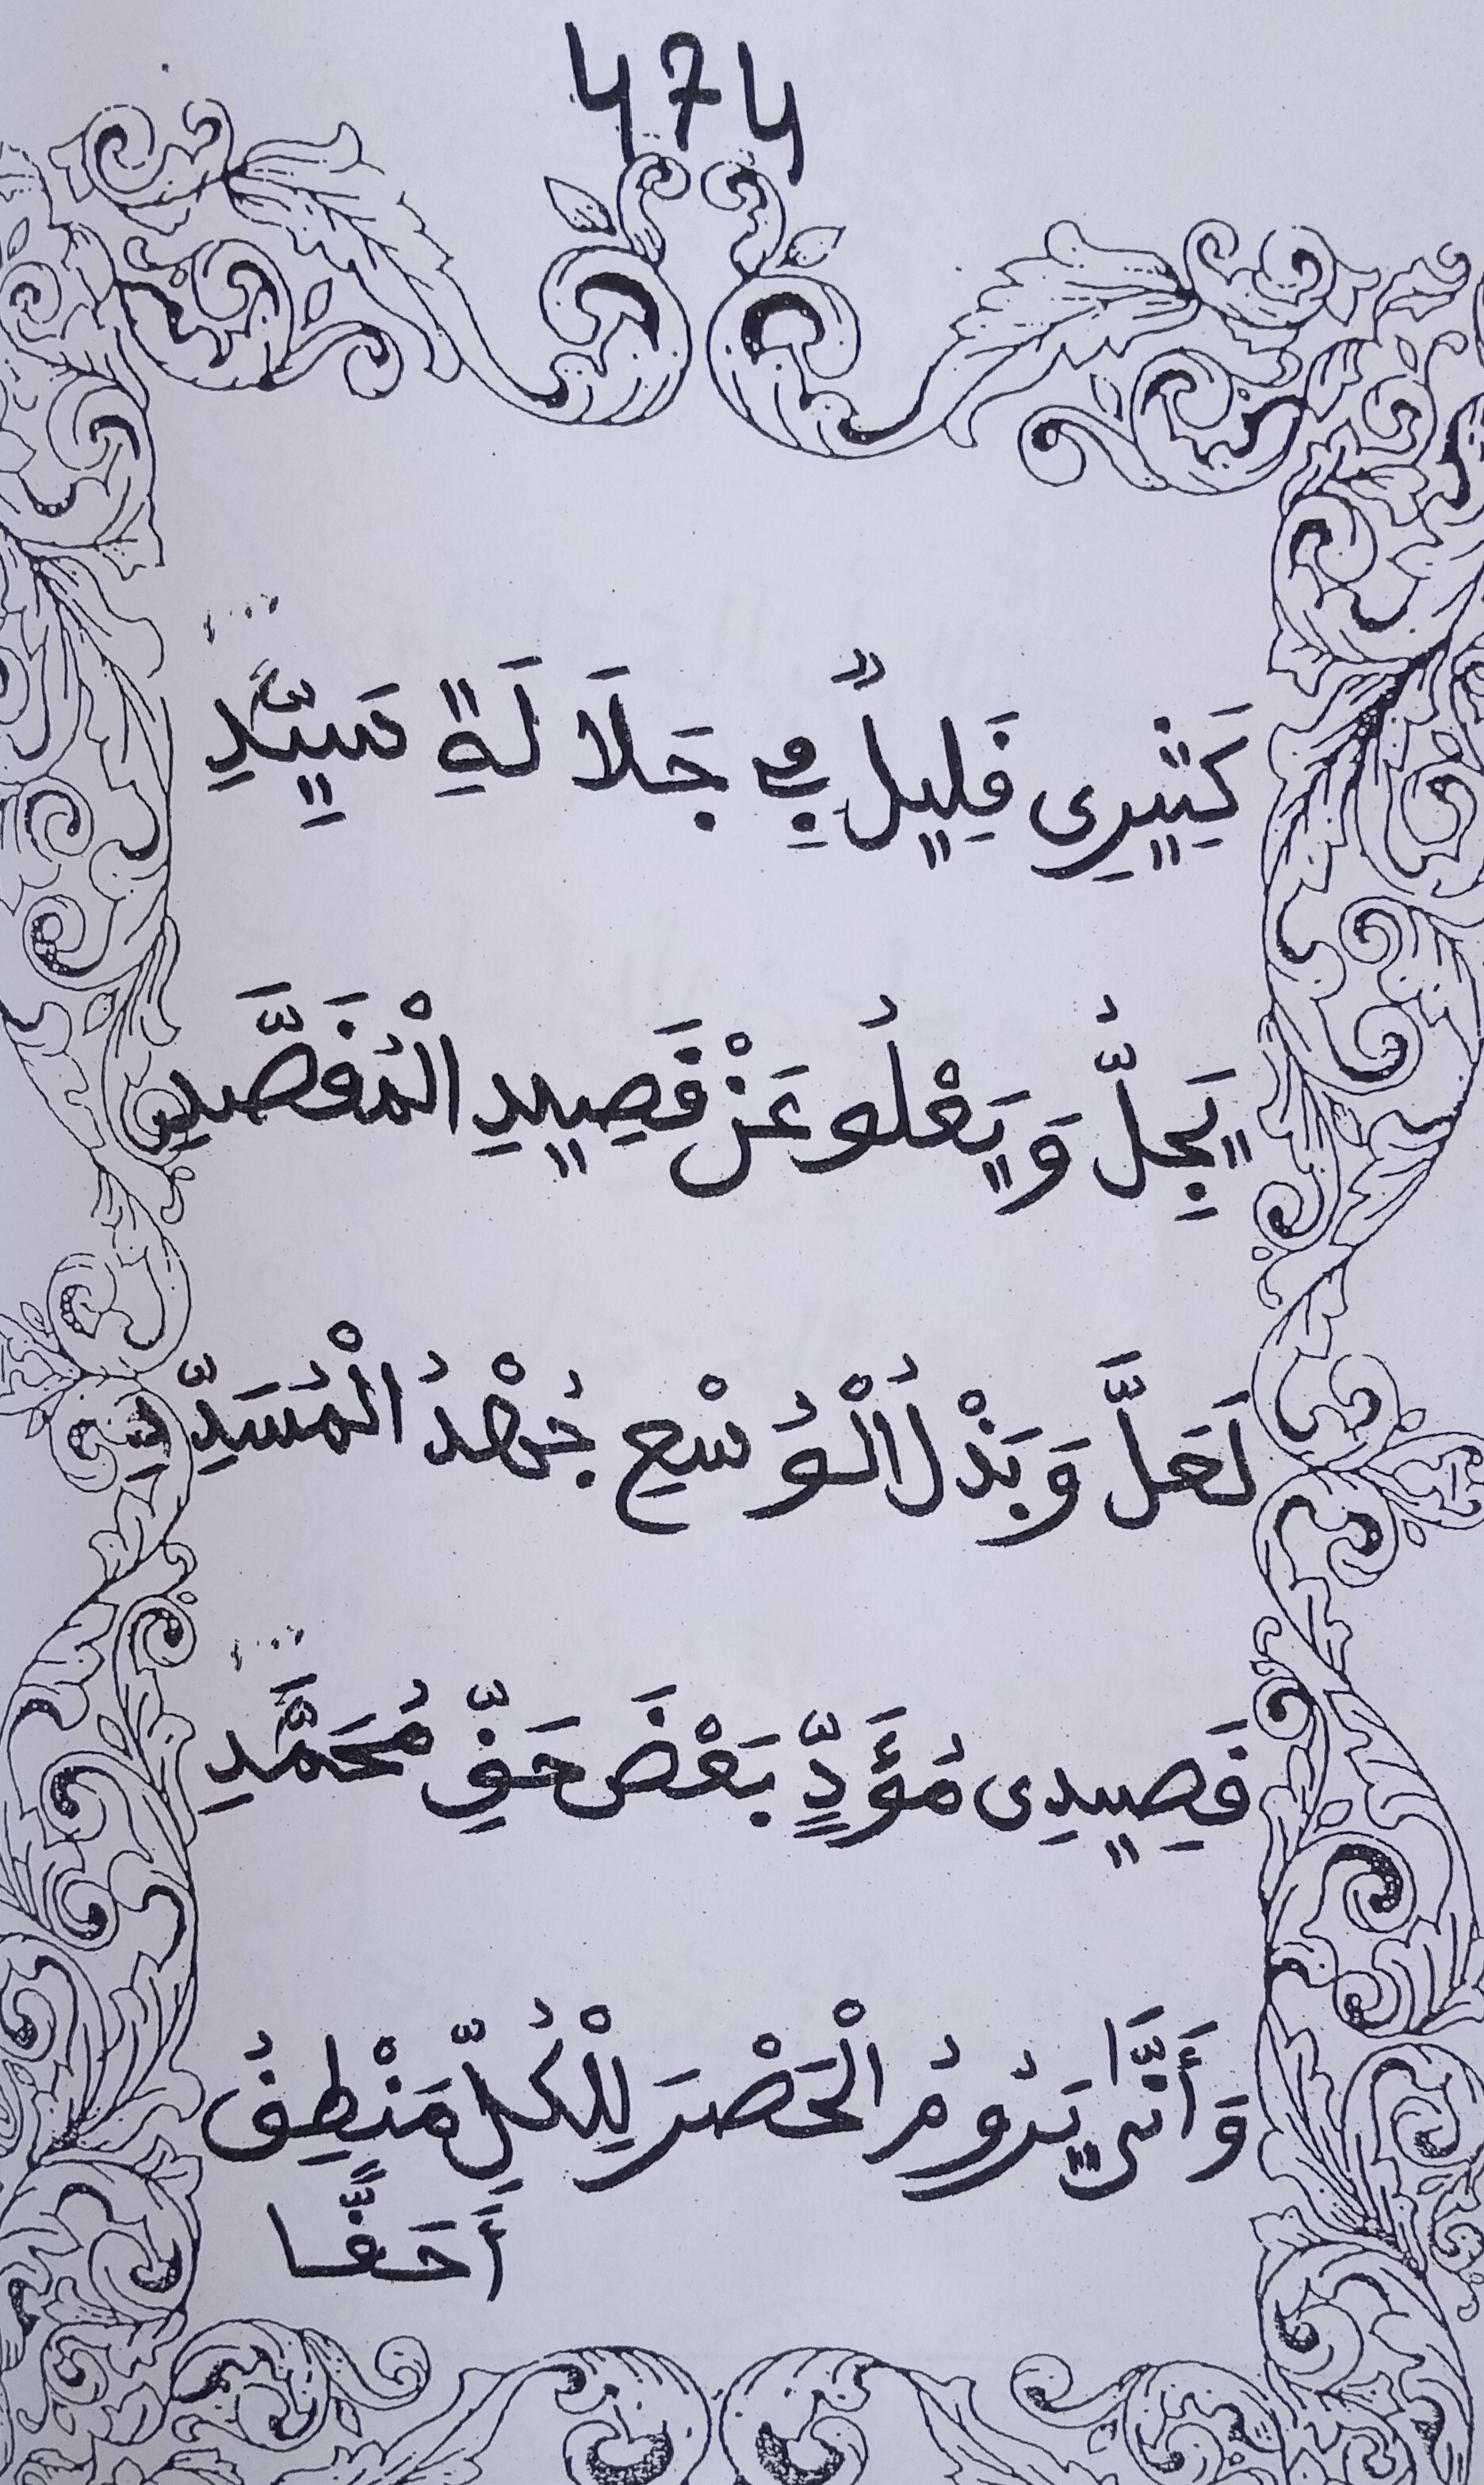 474
كَثِيرِى قَلِيلٌ فِي جَلَالَةِ سَيِّدِ
يَجِلُّ وَيَعْلُو عَنْ قَصِيدِ الْمُقَصَّدِ
لَعَلَّ وَبَذْلُ الْوُسْعِ جُهْدُ الْمُسَدِّدِ
قَصِيدِى مُؤَدٍّ بَعْضَ حَقِّ مُحَمَّدِ
وَأَنَّى يَرُومُ الْحَصْرَ لِلْكُلِّ مَنْطِقُ
أَحَقًّا